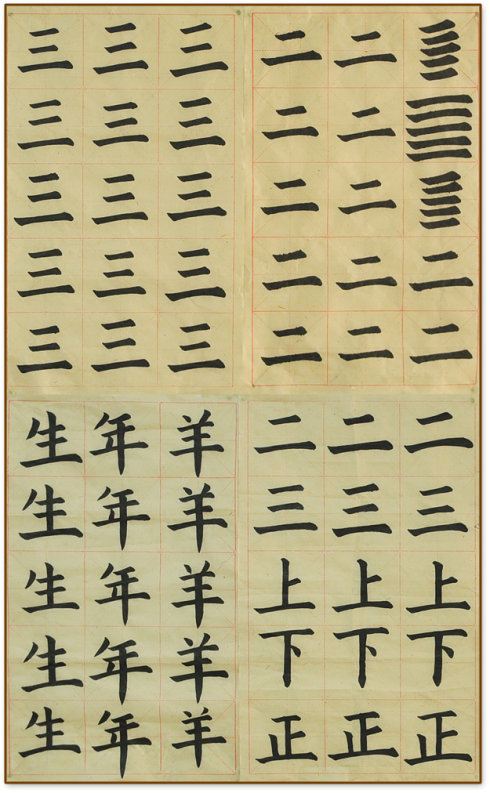 二二
二二二二二
二二二二二
三三三三三
三三三三三
三三三三三
二三上下正
二三上下正
二三上下正
羊羊羊羊羊
年年年年年
生生生生生